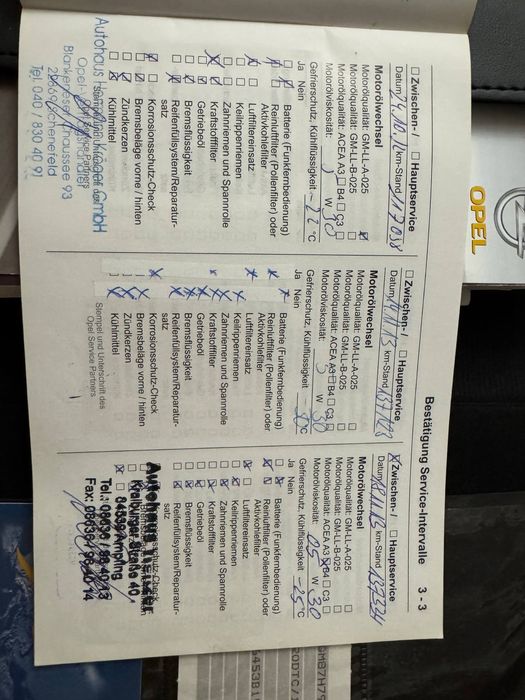 Bestätigung Service-Intervalle 3 - 3
☐ Zwischen- / ☐ Hauptservice
Datum 24.10.12 km-Stand 117038
Motorölwechsel
Motorölqualität: GM-LL-A-025
Motorölqualität: GM-LL-B-025
Motorölqualität: ACEA A3 ☐ B4 ☐ C3 ☐
Motorölviskosität: 5 W 30
Gefrierschutz, Kühlflüssigkeit -22 °C
Ja Nein
Batterie (Funkfernbedienung)
Reinluftfilter (Pollenfilter) oder
Aktivkohlefilter
Luftfiltereinsatz
Keilrippenriemen
Zahnriemen und Spannrolle
Kraftstofffilter
Getriebeöl
Bremsflüssigkeit
Reifenfüllsystem/Reparatur-
satz
Korrosionsschutz-Check
Bremsbeläge vorne / hinten
Zündkerzen
Kühlmittel
Autohaus
Krüger GmbH
Blankeneser Chaussee 93
Schenefeld
Tel. 040 / 830 40 91
☐ Zwischen- / ☐ Hauptservice
km-Stand
Motorölwechsel
Motorölqualität: GM-LL-A-025
Motorölqualität: GM-LL-B-025
Motorölqualität: ACEA A3 ☐ B4 ☐ C3
Motorölviskosität: 5 W 30
Gefrierschutz, Kühlflüssigkeit °C
Ja Nein
Batterie (Funkfernbedienung)
Reinluftfilter (Pollenfilter) oder
Aktivkohlefilter
Luftfiltereinsatz
Keilrippenriemen
Zahnriemen und Spannrolle
Kraftstofffilter
Getriebeöl
Bremsflüssigkeit
Reifenfüllsystem/Reparatur-
satz
Korrosionsschutz-Check
Bremsbeläge vorne / hinten
Zündkerzen
Kühlmittel
Stempel und Unterschrift des
Opel Service Partners
☒ Zwischen- / ☐ Hauptservice
Datum km-Stand 137334
Motorölwechsel
Motorölqualität: GM-LL-A-025
Motorölqualität: GM-LL-B-025
Motorölqualität: ACEA A3 B4 ☐ C3 ☐
Motorölviskosität: 05 W 30
Gefrierschutz, Kühlflüssigkeit -25 °C
Ja Nein
Batterie (Funkfernbedienung)
Reinluftfilter (Pollenfilter) oder
Aktivkohlefilter
Luftfiltereinsatz
Keilrippenriemen
Zahnriemen und Spannrolle
Kraftstofffilter
Getriebeöl
Bremsflüssigkeit
Reifenfüllsystem/Reparatur-
satz
Autohaus
Kraiburger Straße 40
84539 Ampfing
OPEL